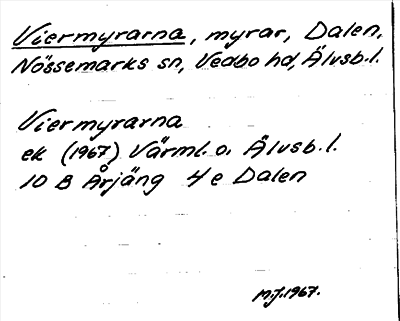 Viermyrarna, myrar, Dalen,
Nössemarks sn, Vedbo hd, Älvsb.l.
Viermyrarna
ek (1967) Värml.o. Älvsb.l.
10 B Årjäng 4e Dalen
M.J.1967.